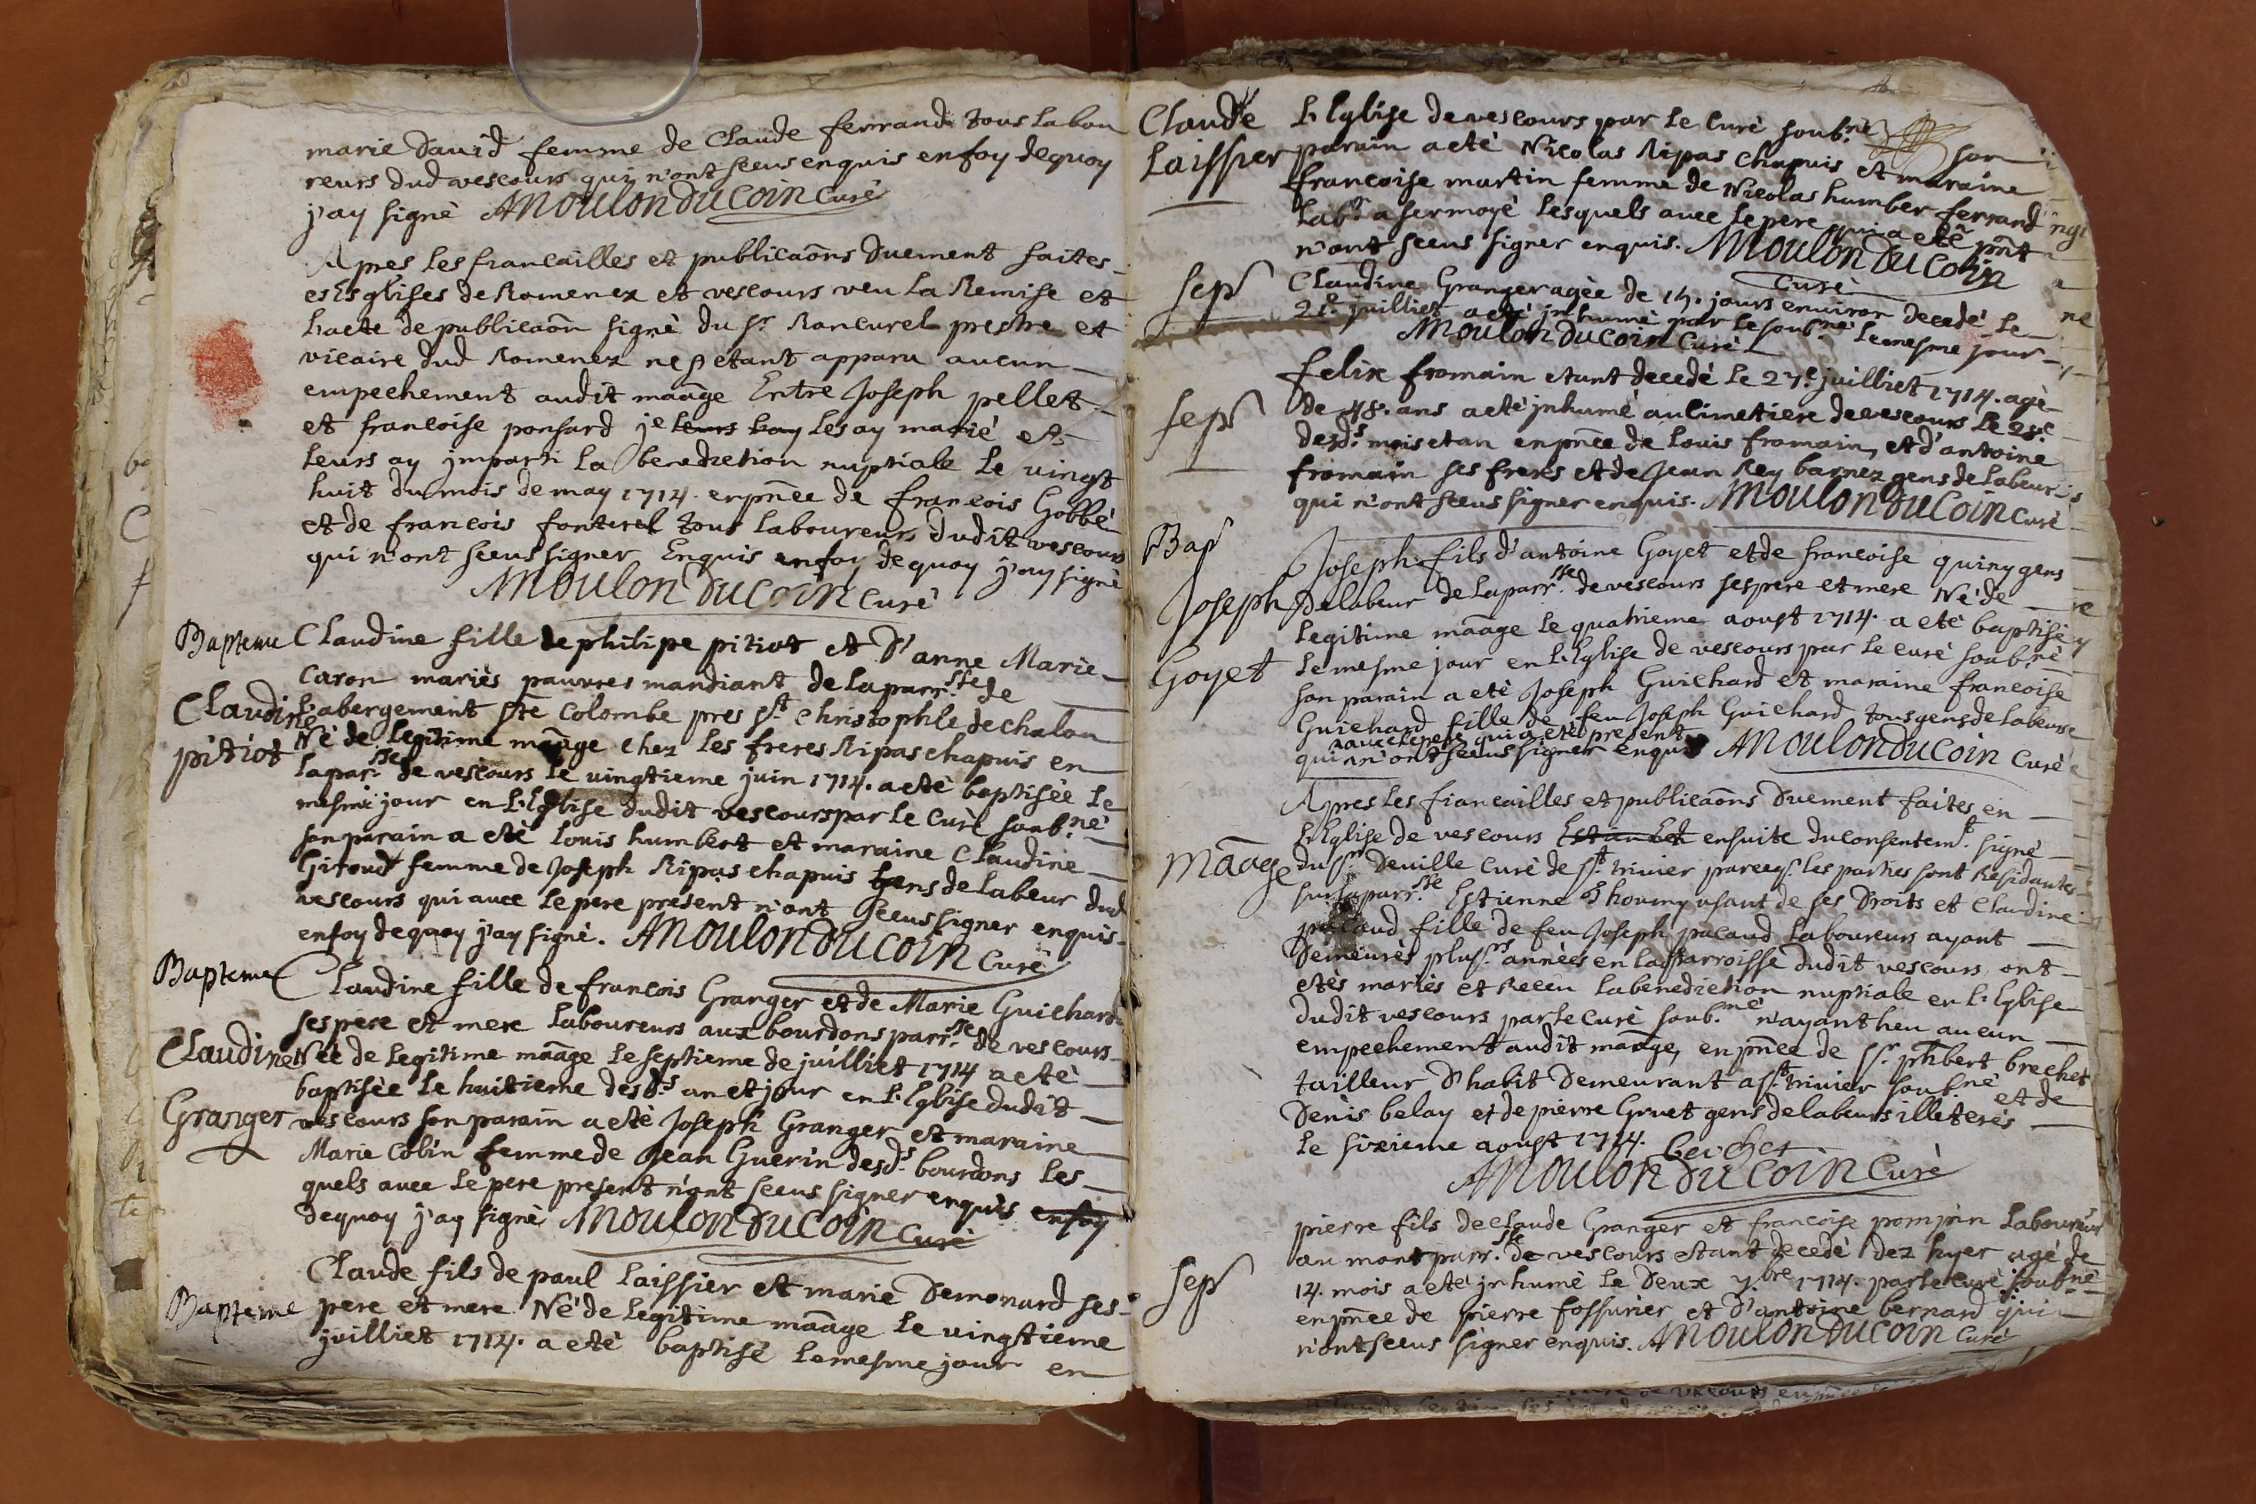 marie David femme de Claude ferrand tous labou
reurs dud vescours qui n'ont sceus enquis en foy dequoy
j'ay signè AMoulon Du Coin Curè
Apres les fiancailles et publicaõns Duement faites
es Esglises de Romenex et vescours veu la Remise et
l'acte de publicaõn signè du Sr Rancurel prestre et
vicaire dud Romenex ne s'etant apparu aucun
empechement audit mãage Entre Joseph pellet
et francoise ponsard je leurs bay les ay mariè et
leurs ay jmparti la benediction nuptiale le vingt
huit du mois de may 1714. en pñce de francois Gobbè
et de francois fonturel tous laboureurs dudit vescours
qui n'ont sceus signer Enquis en foy de quoy j'ay signè
AMoulon Du Coin Curè
Bapteme Claudine fille de philipe pitiot et D'anne Marie
Caron mariès pauvres mandiant de la parr.sse de
Claudine l'abergement Ste Colombe pres St Christophle de chalon
pitiot Nè de legitime mãage chez les freres Ripas chapuis en
la par.sse de vescours le vingtieme juin 1714. a etè baptisèe le
mesme jour en l'Eglise dudit vescours par le Curè soub.nè
son parain a etè louis humbert et maraine Claudine
Giroud femme de Joseph Ripas chapuis gens de labeur dud
vescours qui avec le pere present n'ont sceus signer enquis
en foy de quoy j'ay signè. AMoulon Du Coin Curè
Bapteme Claudine fille de francois Granger et de Marie Guichard
ses pere et mere laboureurs aux bourdons parr.sse de vescours
Claudine Nèe de legitime mãage le septieme de juilliet 1714 a etè
baptisèe le huitieme desd.s an et jour en l'Eglise dudit
Granger vescours son parain a etè Joseph Granger et maraine
Marie Colin femme de Jean Guerin desd.s bourdons les
quels avec le pere present n'ont sceus signer enquis en foy
dequoy j'ay signè AMoulon Du Coin Curè
Claude fils de paul laissier et marie Demonard ses
Bapteme pere et mere Nè de legitime mãage le vingtieme
juilliet 1714. a etè baptisè le mesme jour en
Claude l'Eglise de vescours par le Curè soub.nè son
Laissier parain a etè Nicolas Ripas chapuis et maraine
francoise martin femme de Nicolas humber ferrand
lab.r a sermoyè lesquels avec le pere qui a etè pñt
n'ont sceus signer enquis. AMoulon Du Coin
Curè
Sep Claudine Granger agèe de 14. jours environ decedè le
21e juilliet a etè jnhumè par le soub.nè le mesme jour
AMoulon Du Coin Curè
felix fromain etant decedè le 27e juilliet 1714. agè
Sep de 48. ans a etè jnhumè au cimetiere de vescours le 28e
desd.s mois et an en pñce de louis fromain, et d'antoine
fromain ses freres et de Jean Rey barnez gens de labeur
qui n'ont sceus signer enquis. AMoulon Du Coin Curè
Bap
Joseph fils d'antoine Goyet et de francoise quiny gens
Joseph de labeur de la parr.sse de vescours ses pere et mere Nè de
legitime mãage le quatrieme aoust 1714. a etè baptisè
Goyet le mesme jour en l'Eglise de vescours par le curè soub.nè
son parain a etè Joseph Guichard et maraine francoise
Guichard fille de feu Joseph Guichard tous gens de labeurs
avec le pere qui a etè present
qui n'ont sceus signer enquis AMoulon Du Coin Curè
Apres les fiancailles et publicaõns Duement faites en
l'Eglise de vescours Estien Et ensuite du consentem.t signè
Mãage du Sr Deville Curè de St trivier les parties sont Residantes
sur la parr.sse Estienne thouny usant de ses Droits et Claudine
pacaud fille de feu Joseph pacaud laboureurs ayant
Demeurès plus.rs annèes en la parroisse dudit vescours ont
etès mariès et Receu la benediction nuptiale en l'Eglise
dudit vescours par le Curè soub.nè n'ayant heu aucun
empechement audit mãage, en pñce de Sr phibert brechet
tailleur D'habit Demeurant a St trivier soub.nè et de
Denis belay et de pierre Gruet gens de labeurs illeterès
le sixieme aoust 1714. Berchet
AMoulon Du Coin Curè
pierre fils de claude Granger et francoise pompin laboureur
au mont parr.sse de vescours etant decedè dez hyer agè de
Sep 14. mois a etè jnhumè le Deux 7.bre 1714. par le Curè soub.nè
en pñce de pierre fossurier et D'antoine bernard qui
n'ont sceus signer enquis. AMoulon Du Coin Curè